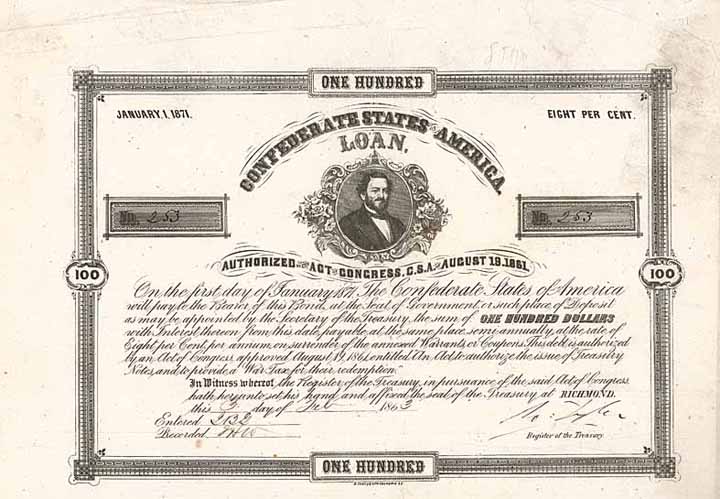 ONE HUNDRED
JANUARY, 1, 1871.
EIGHT PER CENT.
CONFEDERATE STATES OF AMERICA.
LOAN,
No. 253
No. 253
AUTHORIZED BY THE ACT OF CONGRESS, C.S.A. OF AUGUST 19. 1861.
100
100
On the first day of January 1871, The Confederate States of America
will pay to the Bearer of this Bond, at the Seat of Government, or such place of Deposit
as may be appointed by the Secretary of the Treasury, the sum of ONE HUNDRED DOLLARS
with Interest thereon from this date, payable at the same place semi-annually, at the rate of
Eight per Cent, per annum, on surrender of the annexed Warrants or Coupons. This debt is authorized
by an Act of Congress approved August 19, 1861, entitled An Act to authorize the issue of Treasury
Notes, and to provide a War Tax for their redemption.
In Witness whereof, the Register of the Treasury, in pursuance of the said Act of Congress,
hath hereunto set his hand and affixed the seal of the Treasury at RICHMOND.
this 3 day of 1863
Entered 2132
Recorded
Register of the Treasury
ONE HUNDRED